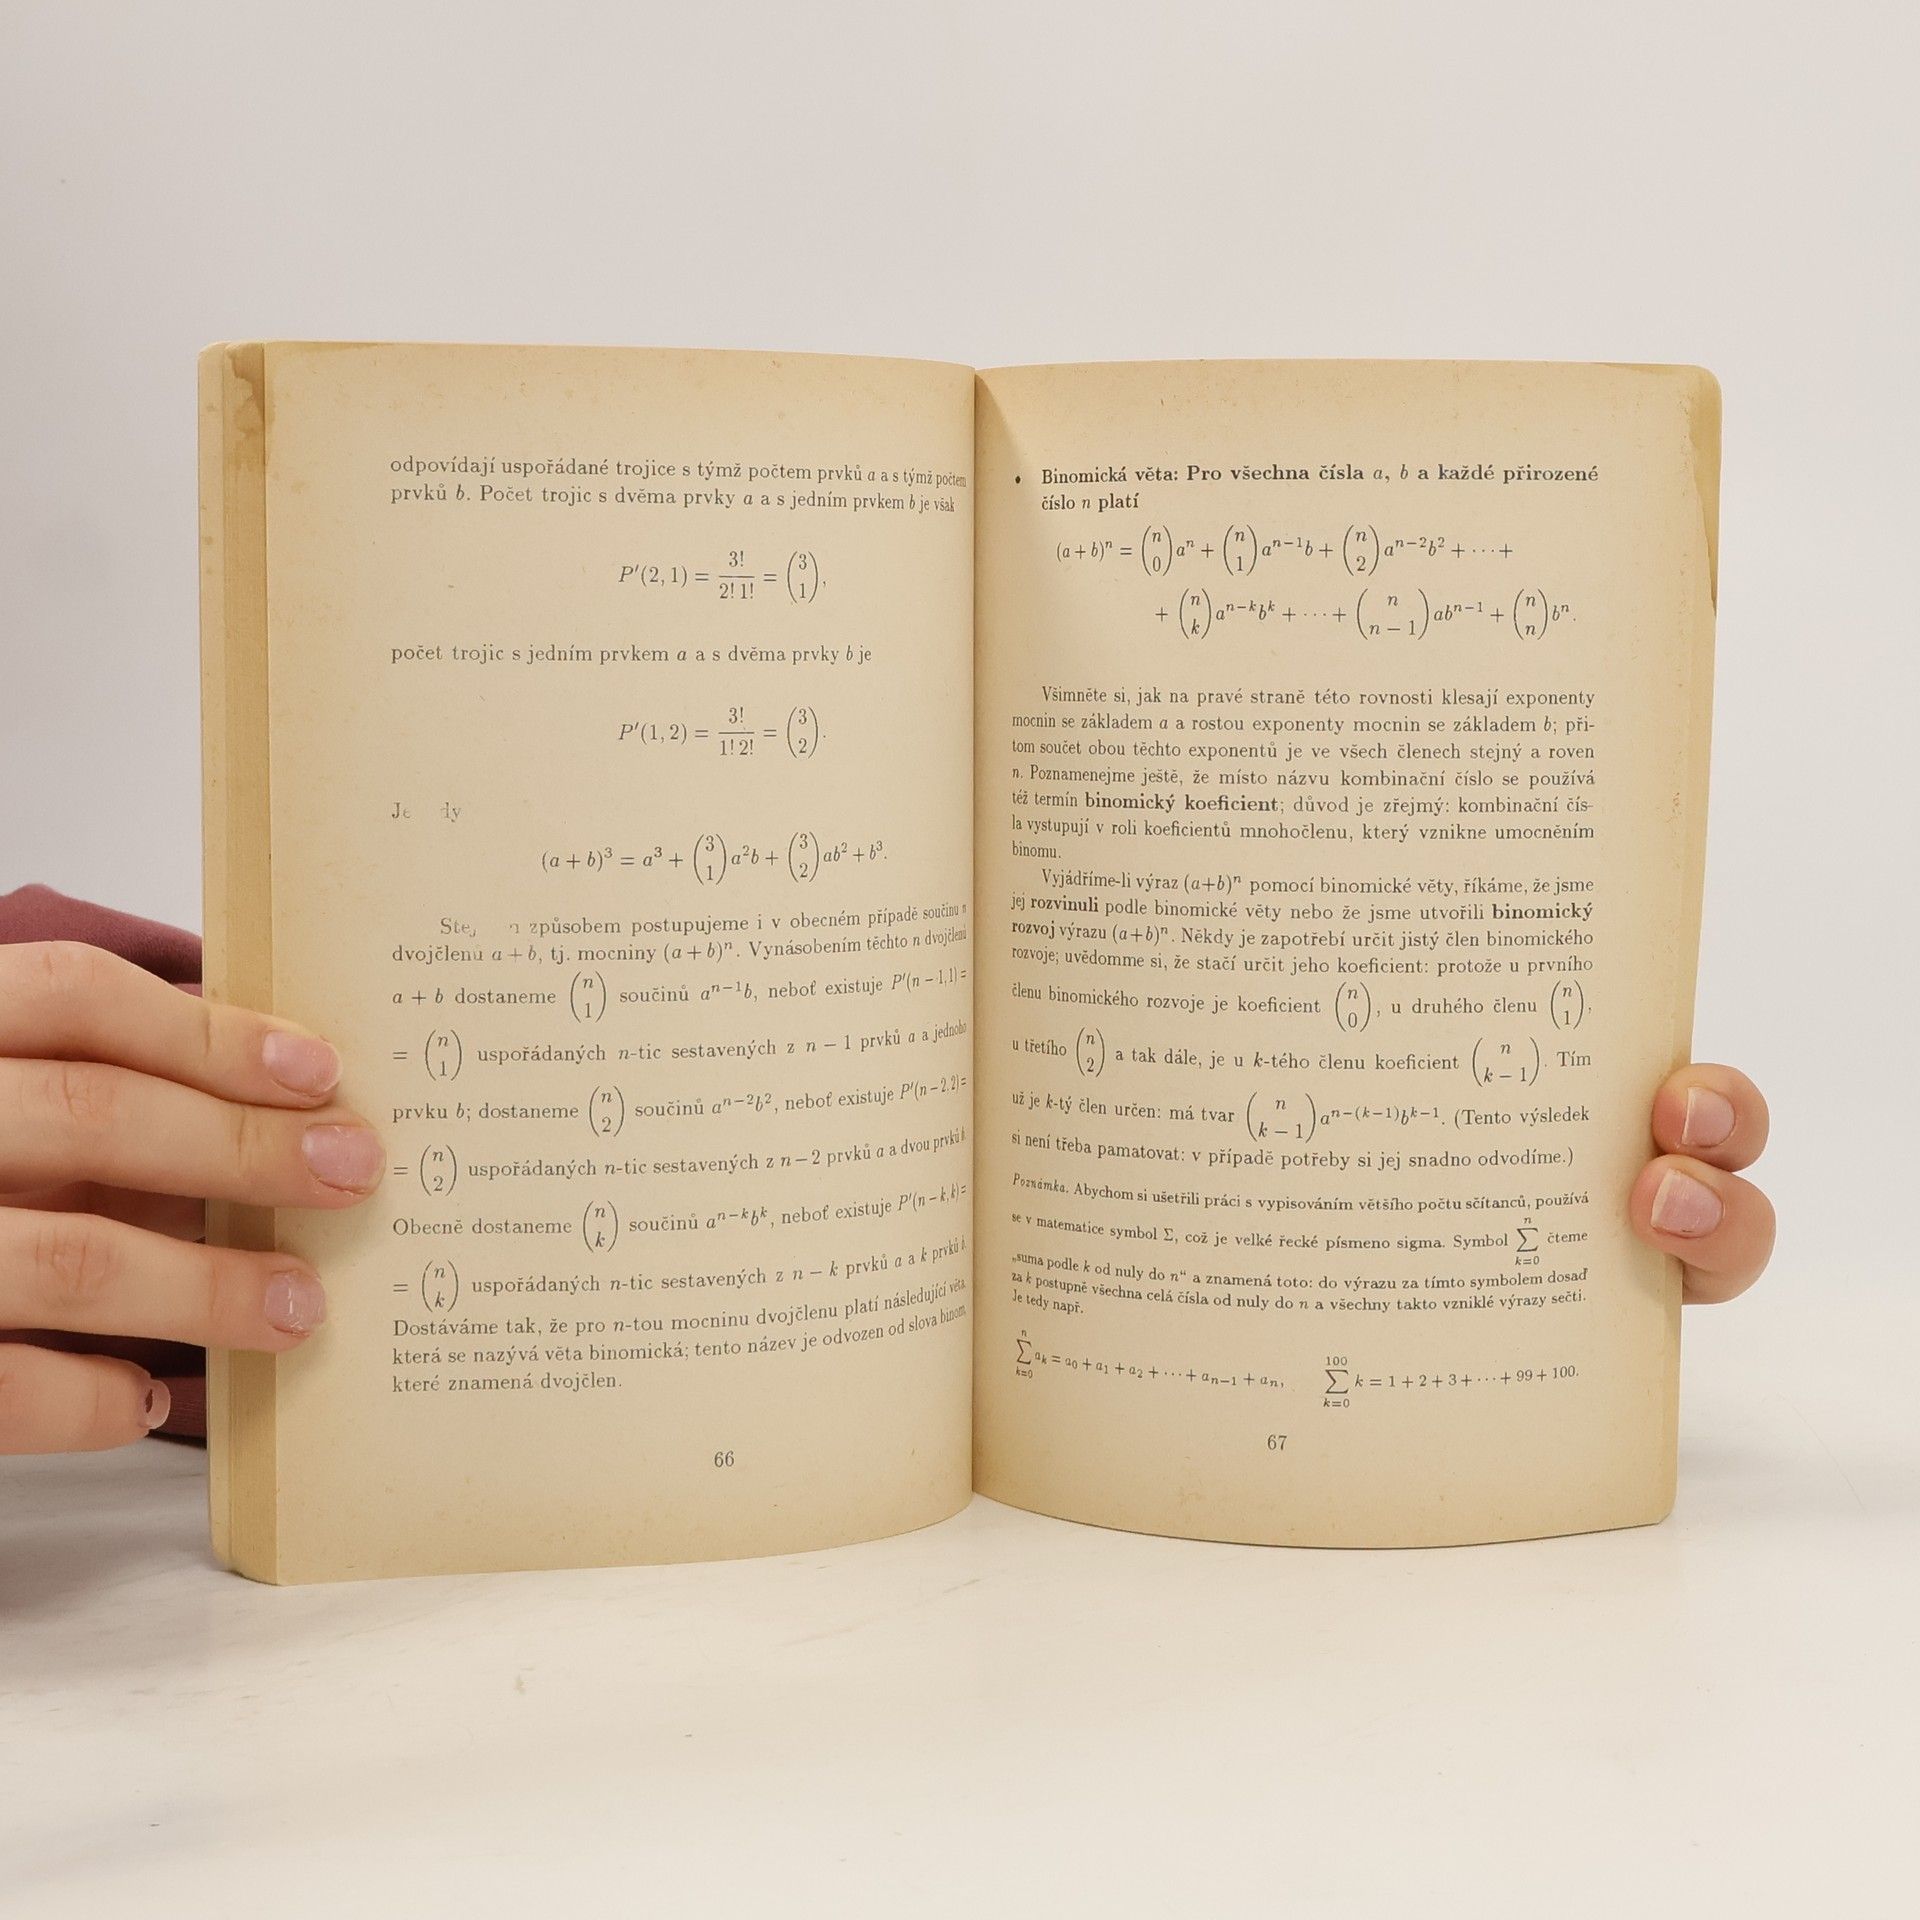 odpovídají uspořádané trojice s týmž počtem prvků a a s týmž počtem
prvků b. Počet trojic s dvěma prvky a a s jedním prvkem b je však
P′(2, 1) = 3!/(2! 1!) = (3 1),
počet trojic s jedním prvkem a a s dvěma prvky b je
P′(1, 2) = 3!/(1! 2!) = (3 2).
(a + b)³ = a³ + (3 1) a²b + (3 2) ab² + b³.
způsobem postupujeme i v obecném případě součinu n
dvojčlenů a + b, tj. mocniny (a + b)ⁿ. Vynásobením těchto n dvojčlenů
a + b dostaneme (n 1) součinů aⁿ⁻¹b, neboť existuje P′(n − 1, 1) =
= (n 1) uspořádaných n-tic sestavených z n − 1 prvků a a jednoho
prvku b; dostaneme (n 2) součinů aⁿ⁻²b², neboť existuje P′(n − 2, 2) =
= (n 2) uspořádaných n-tic sestavených z n − 2 prvků a a dvou prvků b.
Obecně dostaneme (n k) součinů aⁿ⁻ᵏbᵏ, neboť existuje P′(n − k, k) =
= (n k) uspořádaných n-tic sestavených z n − k prvků a a k prvků b.
Dostáváme tak, že pro n-tou mocninu dvojčlenu platí následující věta,
která se nazývá věta binomická; tento název je odvozen od slova binom,
které znamená dvojčlen.
66
• Binomická věta: Pro všechna čísla a, b a každé přirozené
číslo n platí
(a + b)ⁿ = (n 0) aⁿ + (n 1) aⁿ⁻¹b + (n 2) aⁿ⁻²b² + ··· +
+ (n k) aⁿ⁻ᵏbᵏ + ··· + (n n − 1) abⁿ⁻¹ + (n n) bⁿ.
Všimněte si, jak na pravé straně této rovnosti klesají exponenty
mocnin se základem a a rostou exponenty mocnin se základem b; při-
tom součet obou těchto exponentů je ve všech členech stejný a roven
n. Poznamenejme ještě, že místo názvu kombinační číslo se používá
též termín binomický koeficient; důvod je zřejmý: kombinační čís-
la vystupují v roli koeficientů mnohočlenu, který vznikne umocněním
binomu.
Vyjádříme-li výraz (a+b)ⁿ pomocí binomické věty, říkáme, že jsme
jej rozvinuli podle binomické věty nebo že jsme utvořili binomický
rozvoj výrazu (a+b)ⁿ. Někdy je zapotřebí určit jistý člen binomického
rozvoje; uvědomme si, že stačí určit jeho koeficient: protože u prvního
členu binomického rozvoje je koeficient (n 0), u druhého členu (n 1),
u třetího (n 2) a tak dále, je u k-tého členu koeficient (n k − 1). Tím
už je k-tý člen určen: má tvar (n k − 1) aⁿ⁻⁽ᵏ⁻¹⁾bᵏ⁻¹. (Tento výsledek
si není třeba pamatovat: v případě potřeby si jej snadno odvodíme.)
Poznámka. Abychom si ušetřili práci s vypisováním většího počtu sčítanců, používá
se v matematice symbol Σ, což je velké řecké písmeno sigma. Symbol n ∑ k=0 čteme
„suma podle k od nuly do n“ a znamená toto: do výrazu za tímto symbolem dosaď
za k postupně všechna celá čísla od nuly do n a všechny takto vzniklé výrazy sečti.
Je tedy např.
n ∑ k=0 aₖ = a₀ + a₁ + a₂ + ··· + aₙ₋₁ + aₙ, 100 ∑ k=0 k = 1 + 2 + 3 + ··· + 99 + 100.
67